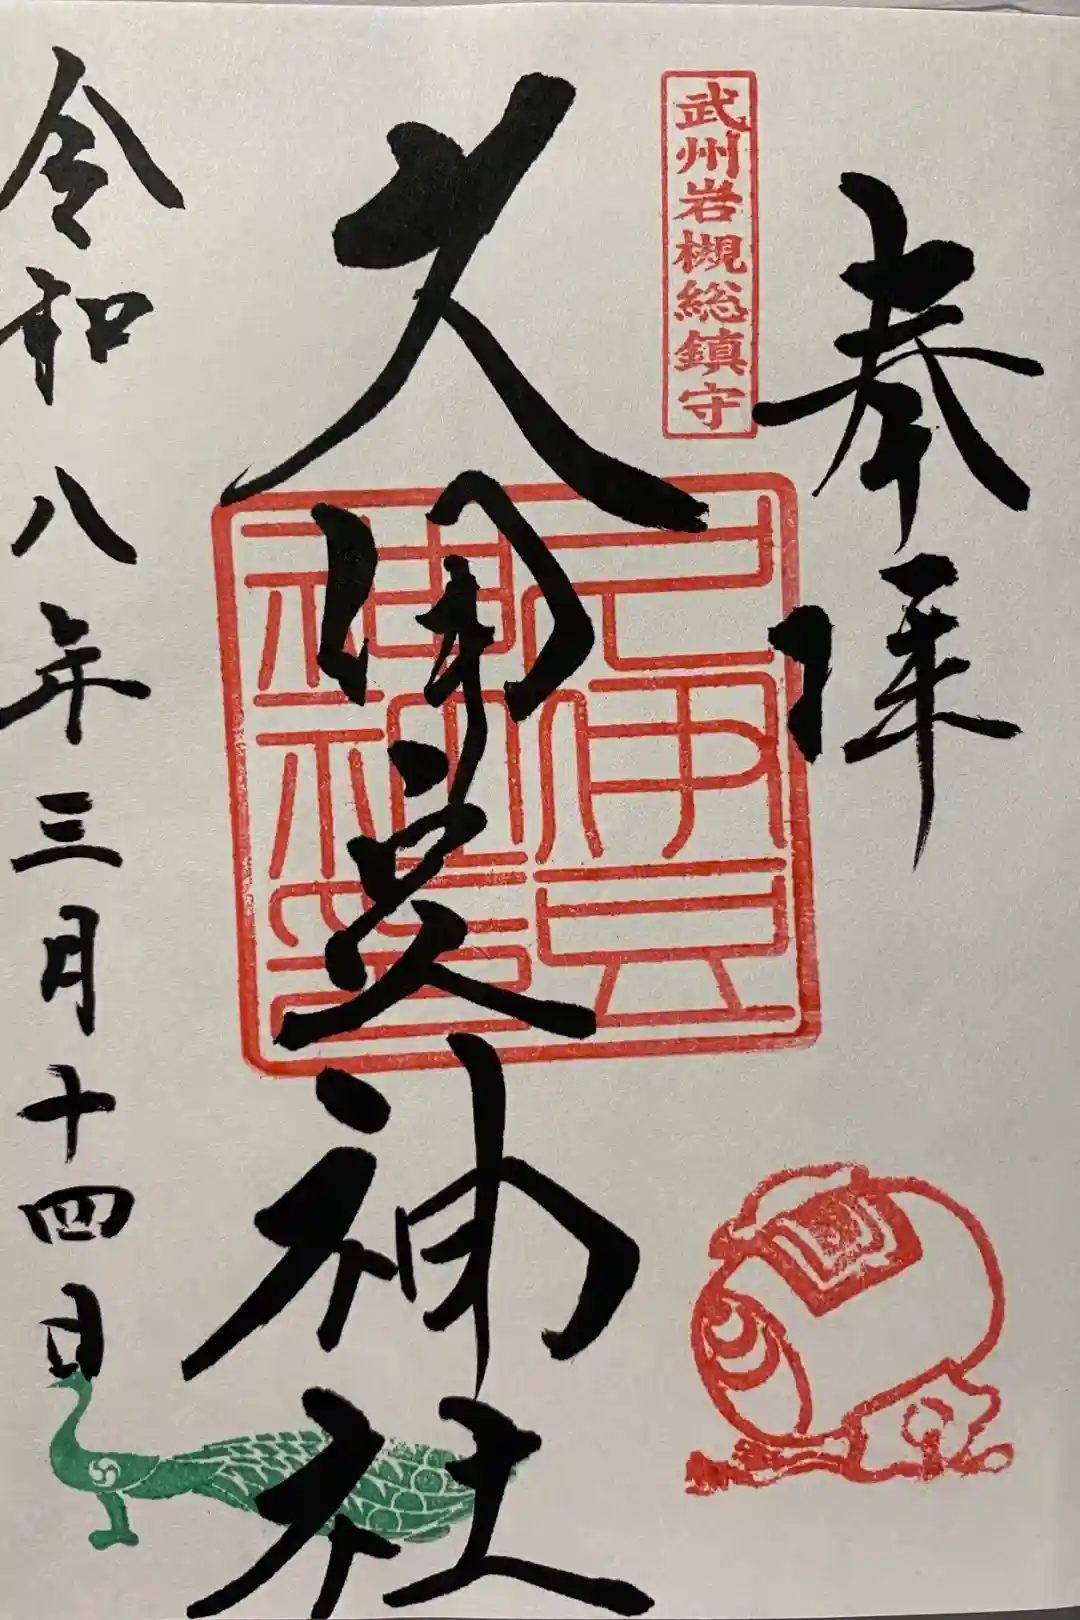 奉拝
武州岩槻総鎮守
久伊豆神社
久伊豆
神社印
令和八年三月十四日